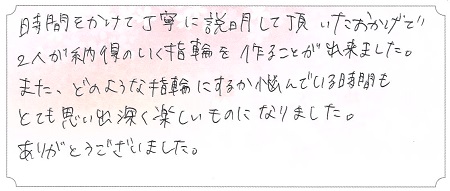 時間をかけて丁寧に説明して頂いたおかげで
2人が納得のいく指輪を作ることが出来ました。
また、どのような指輪にするか悩んでいる時間も
とても思い出深く楽しいものになりました。
ありがとうございました。